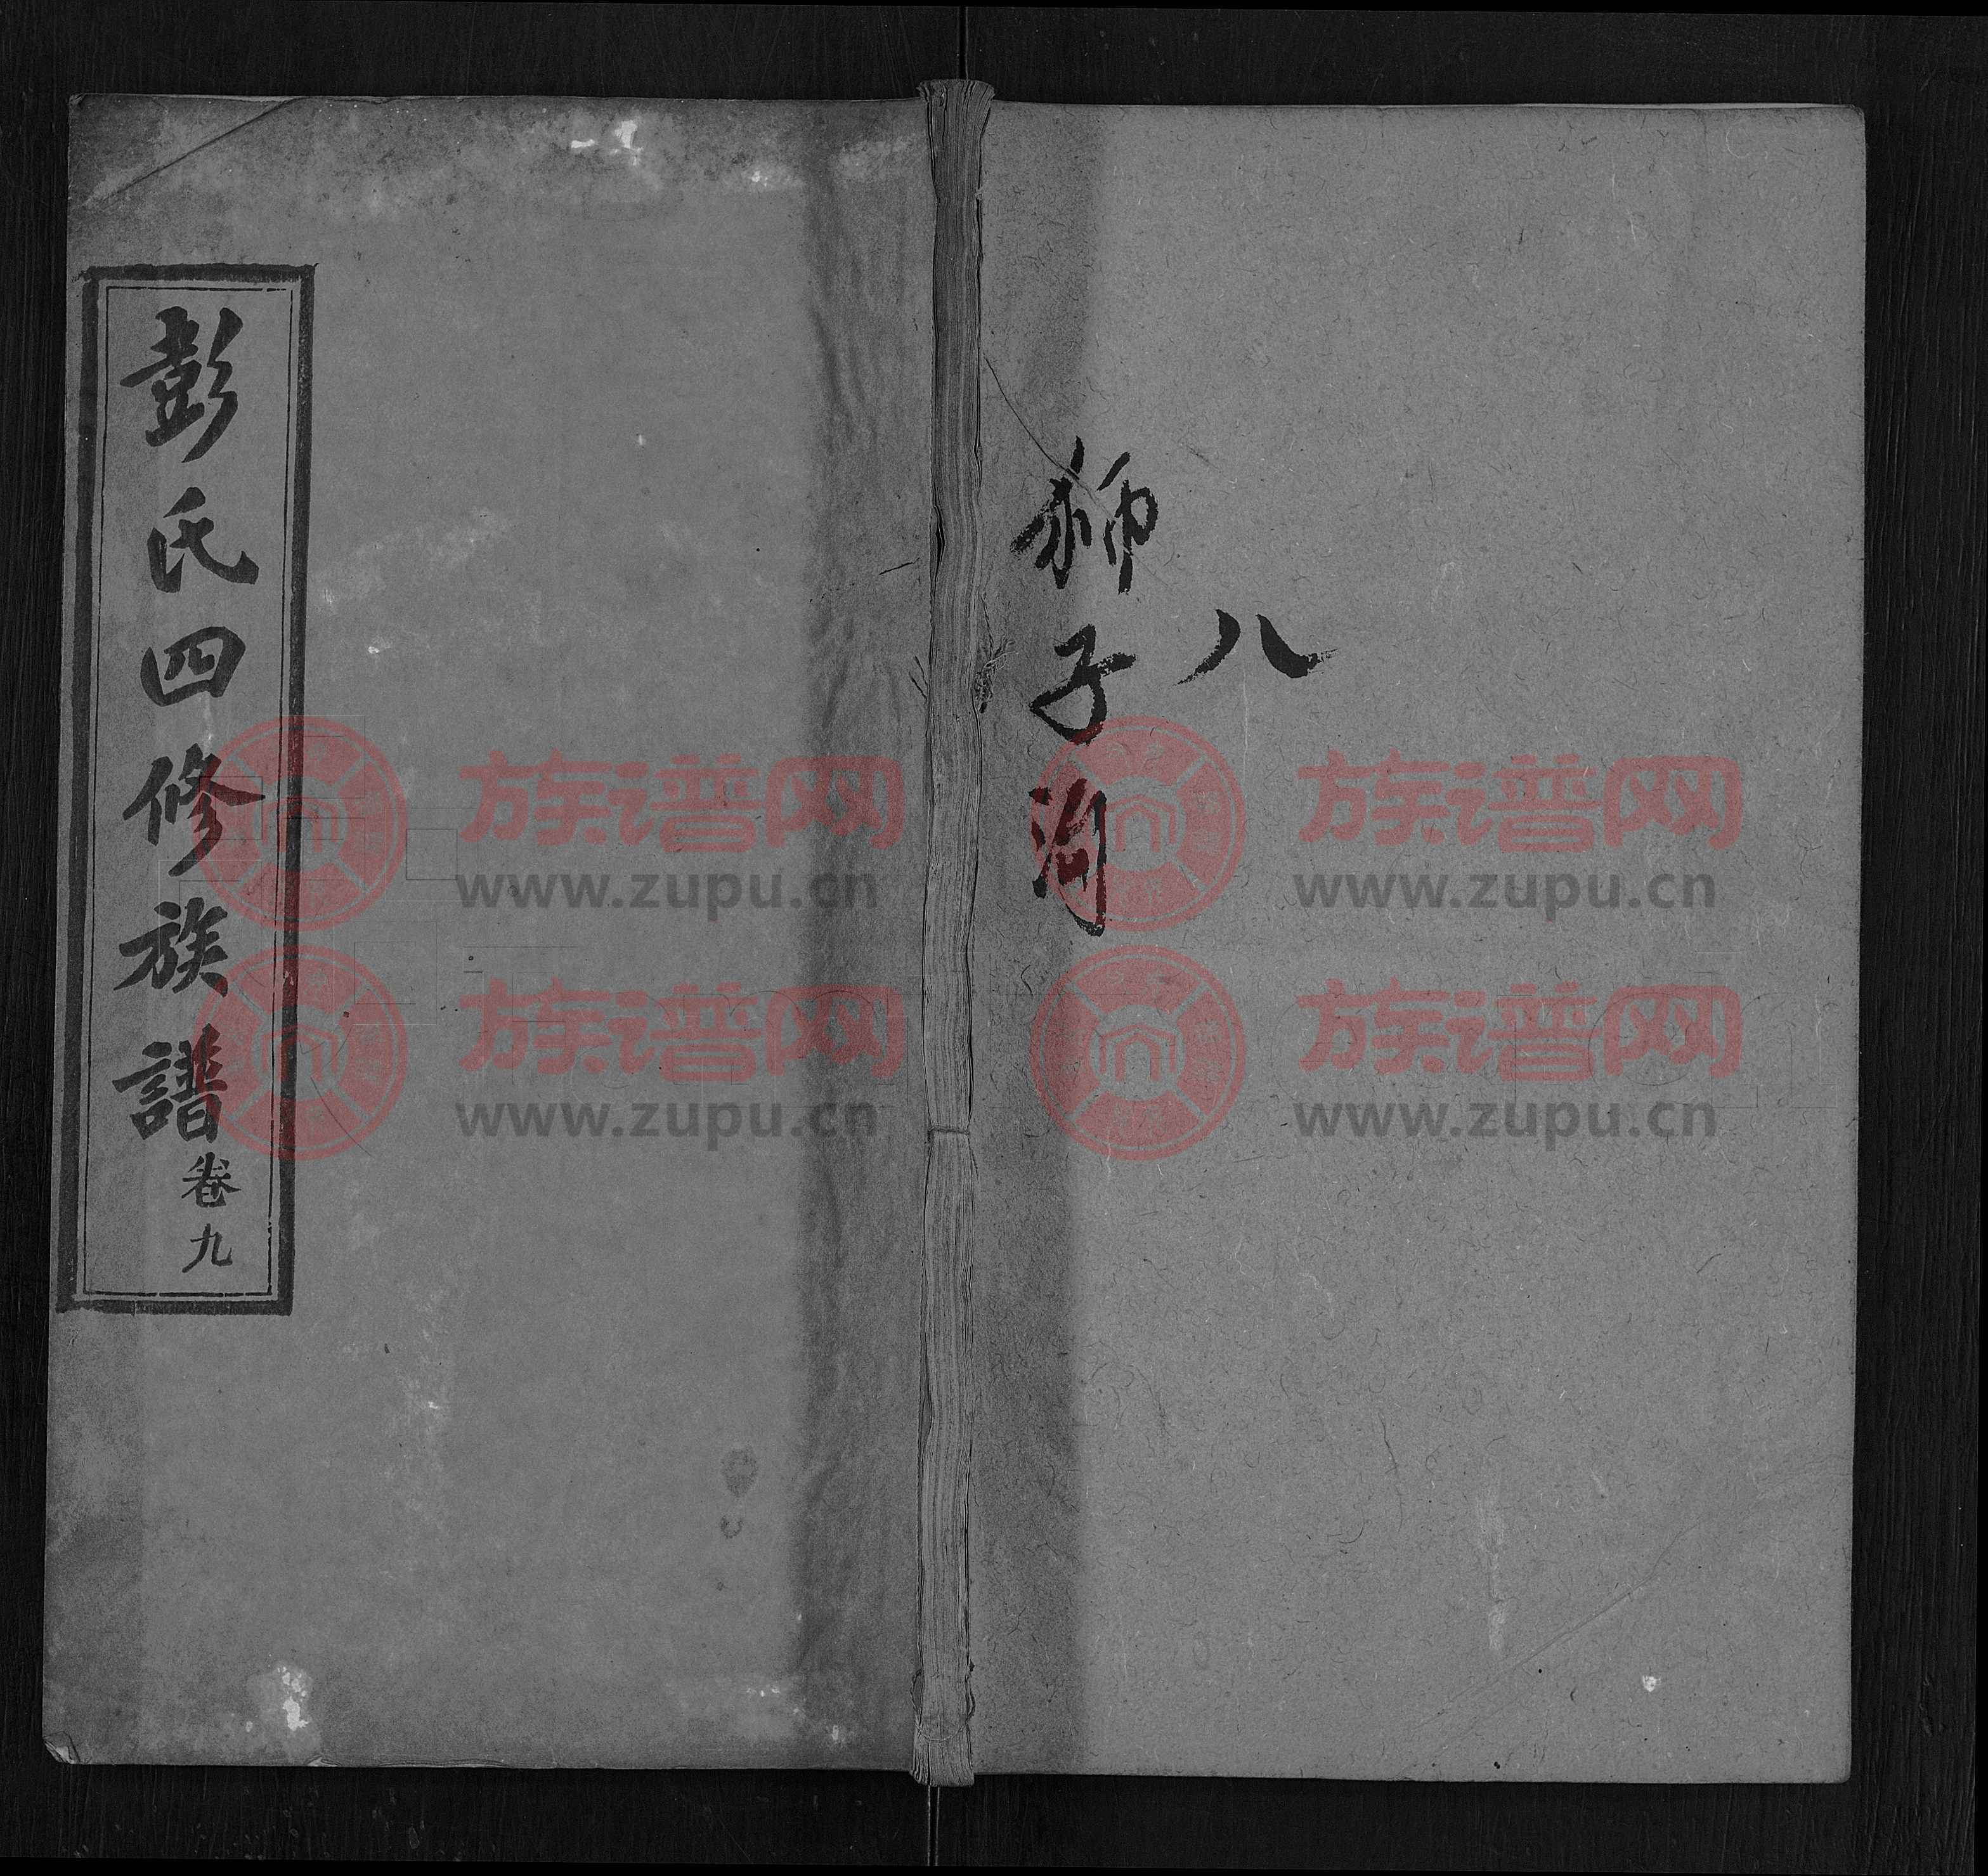 八
狮子
彭氏四修族譜卷九
族谱网
www.zupu.cn
族谱网
www.zupu.cn
族谱网
www.zupu.cn
族谱网
www.zupu.cn